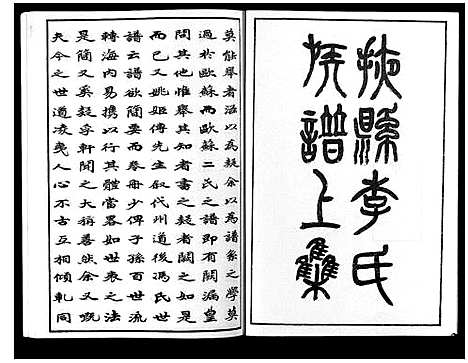 掖縣李氏
族譜上雧
莫能舉者以為疑余以為譜系之學莫
過於歐蘇而歐蘇二氏之譜即有闕漏皇
問其他惟舉其知者書之疑者闕之如是
而已又姚姬傳先生叙代州道後馮氏世
譜云譜欲簡而卷冊少俾子孫百世流
轉海內易携以行其體當畧如世表之法
是簡又奚疑孚軒聞之大稱善然余又嘅
夫今之世道凌夷人心不古互相傾軋同